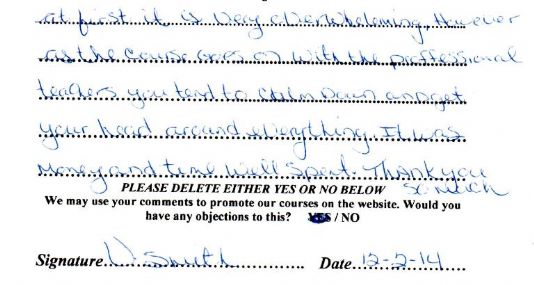 at first it is very overwhelming, However
as the course goes on with the proffessional
teachers you tend to calm Down and get
your head around everything. It was
money and time well spent. Thank you
so much
PLEASE DELETE EITHER YES OR NO BELOW
We may use your comments to promote our courses on the website. Would you
have any objections to this? YES / NO
Signature........ Smith Date 12-2-14